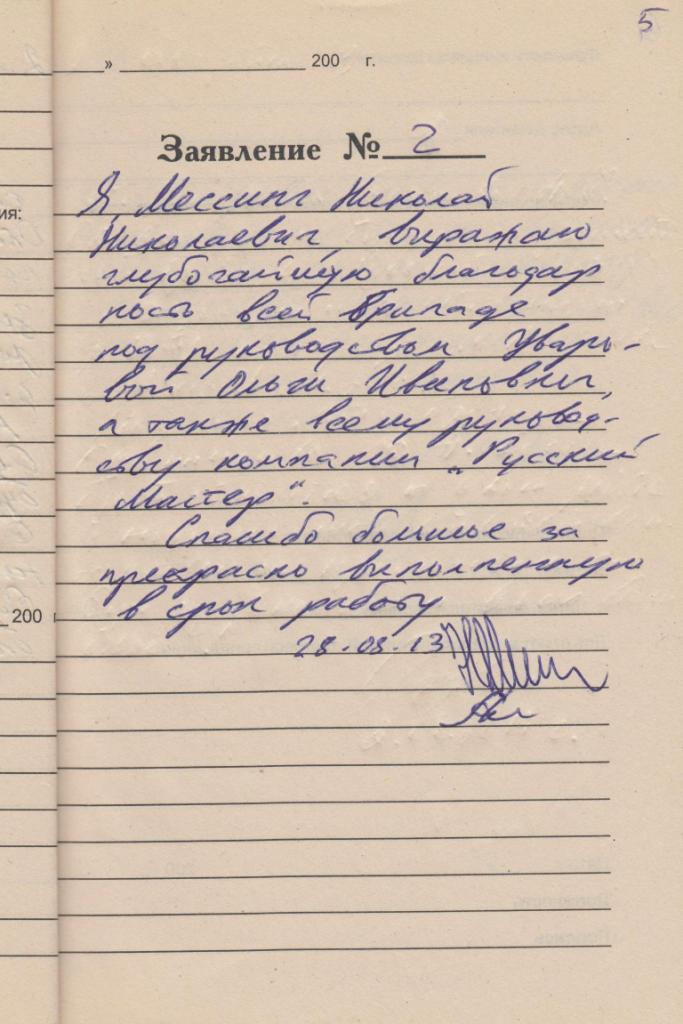 5
» 200 г.
Заявление № 2
Я, Мессинг Николай
ия:
Николаевич, выражаю
глубочайшую благодар
ность всей бригаде
под руководством Уваро-
вой Ольги Ивановны,
а также всему руковод-
ству компании „Русский
Мастер“.
Спасибо большое за
прекрасно выполненную
200
в срок работу
28.08.13